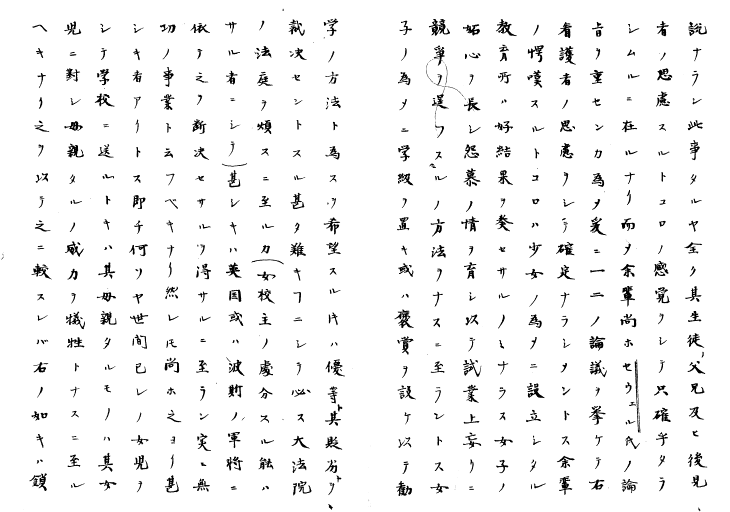 説ナラン此事タルヤ全ク其生徒、父兄及ヒ後見
者ノ思慮スルトコロノ感覚ヲシテ只確乎タラ
シムルニ在ルナリ而ヲ余輩尚ホセウェル氏ノ論
旨ヲ重センカ為メ爰ニ一二ノ論議ヲ挙ケテ右
看護者ノ思慮ヲシテ確定ナラシメントス余輩
ノ愕嘆スルトコロハ少女ノ為メニ設立シタル
教育所ハ好結果ヲ発セサルノミナラス女子ノ
妬心ヲ長シ怨慕ノ情ヲ育シ以テ試業上妄リニ
競争ヲ逞フスルノ方法ヲナスニ至ラントス女
子ノ為メニ学級ヲ置キ或ハ褒賞ヲ設ケ以テ勧
学ノ方法ト為スヲ希望スル𪜈ハ優等ト其貶劣ヲ、
裁决セントスル甚タ難キフニシテ必ス大法院
ノ法庭ヲ煩スニ至ルカ(女校主ノ處分スル能ハ
サル者ニシテ)甚シキハ英国或ハ波斯ノ軍将ニ
依テ之ヲ断决セサルヲ得サルニ至ラン実ニ無
功ノ事業ト云フヘキナリ然レ𪜈尚ホ之ヨリ甚
シキ者アリトス即チ何ソヤ世間己レノ女児ヲ
シテ学校ニ送ルトキハ其母親タルモノハ其女
児ニ對シ母親タルノ威力ヲ犠牲トナスニ至ル
ヘキナリ之ヲ以テ之ニ較スレバ右ノ如キハ鎖